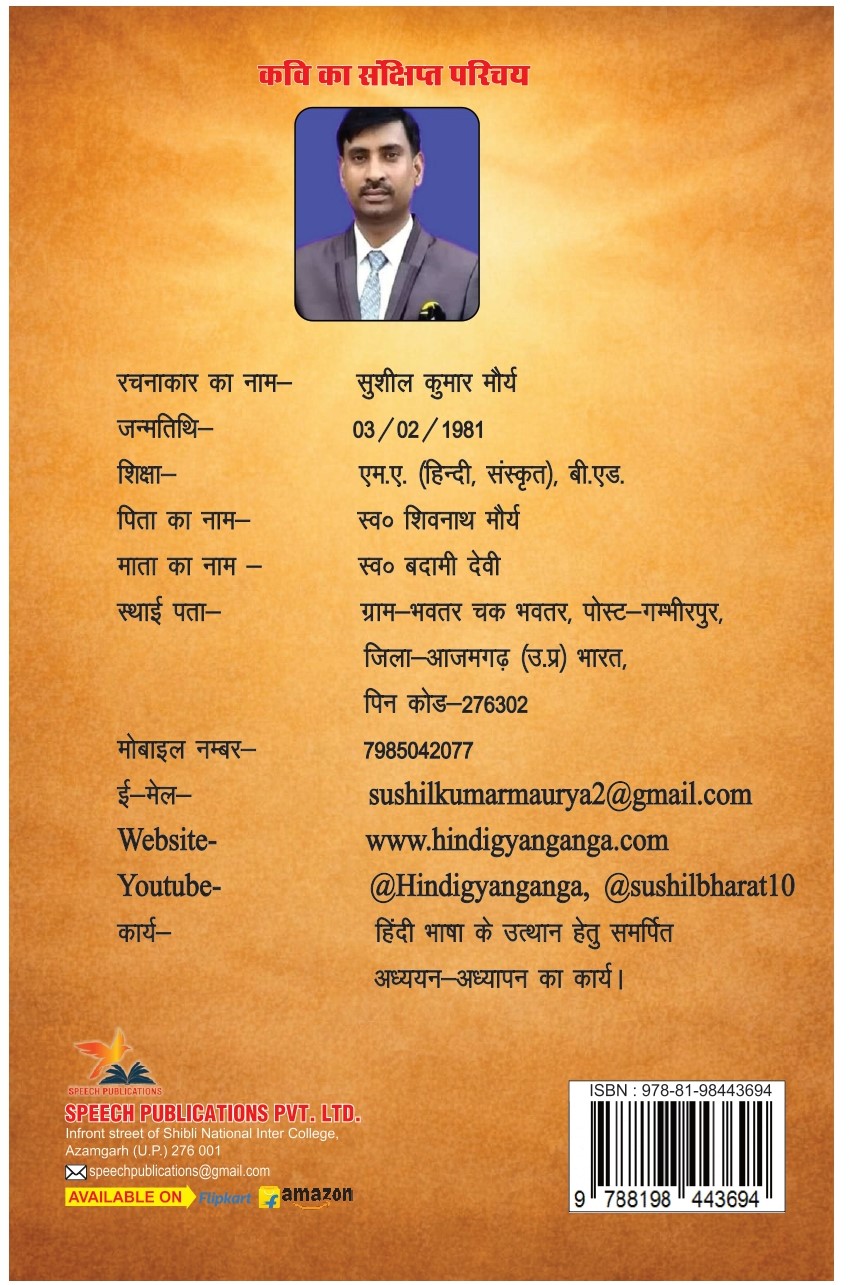 कवि का संक्षिप्त परिचय
रचनाकार का नाम– सुशील कुमार मौर्य
जन्मतिथि– 03/02/1981
शिक्षा– एम.ए. (हिन्दी, संस्कृत), बी.एड.
पिता का नाम– स्व० शिवनाथ मौर्य
माता का नाम – स्व० बदामी देवी
स्थाई पता– ग्राम–भवतर चक भवतर, पोस्ट–गम्भीरपुर,
जिला–आजमगढ़ (उ.प्र) भारत,
पिन कोड–276302
मोबाइल नम्बर– 7985042077
ई–मेल– sushilkumarmaurya2@gmail.com
Website- www.hindigyanganga.com
Youtube- @Hindigyanganga, @sushilbharat10
कार्य– हिंदी भाषा के उत्थान हेतु समर्पित
अध्ययन–अध्यापन का कार्य।
SPEECH PUBLICATIONS
SPEECH PUBLICATIONS PVT. LTD.
Infront street of Shibli National Inter College,
Azamgarh (U.P.) 276 001
speechpublications@gmail.com
AVAILABLE ON Flipkart amazon
ISBN : 978-81-98443694
9 788198 443694